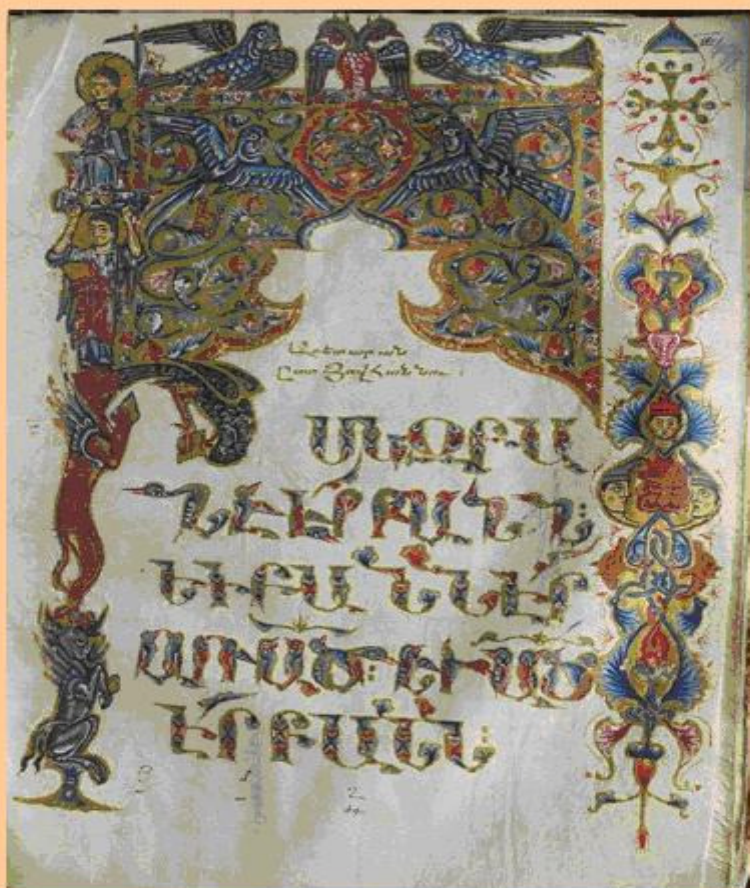 Աւետարան
ըստ Յովհաննու
Ի ՍԿԶԲԱ
ՆԷ ԷՐ ԲԱՆՆ:
ԵՒ ԲԱՆՆ ԷՐ
ԱՌ ԱԾ: ԵՒ ԱԾ
ԷՐ ԲԱՆՆ: